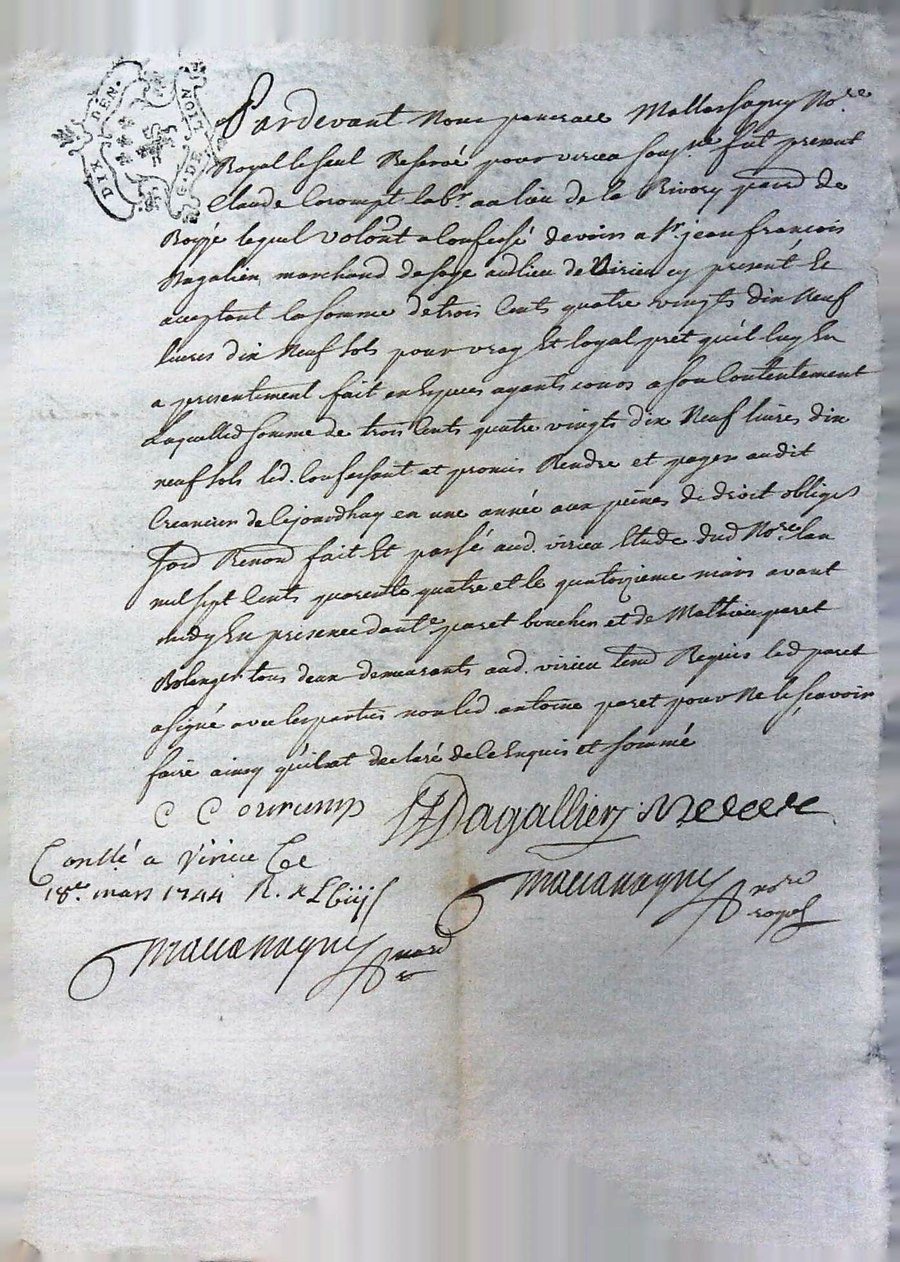 DIX DEN.
G. DE
Pardevant Nous No.re
Royal le seul Reservé pour virieu sous.né fut present
Claude Corompt lab.r au lieu de la Rivory de
lequel volont a Confessé devoir a S.r jean françois
Dagalien marchand de soye audlieu de Virieu cy present Et
acceptant la somme de trois Cents quatre vingts dix Neuf
livres dix Neuf sols pour vray Et loyal pret quil luy En
a presentement fait en Especes ayants cours a son Contentement
Laquelled somme de trois Cents quatre vingts dix Neuf livres dix
neuf sols led. Confessant at promis Rendre et payer audit
Creancier de Cejourdhuy en une année aux peines de droit obliges
fait Et passé aud. virieu Etude dud No.re Lan
mil sept Cents quarente quatre et le quatorzieme mars avant
midy En presence dant.e paret boucher et de Mathieu paret
Bolanger tous deux demeurants aud. virieu Requis led paret
a signé avec les parties non led. antoine paret pour Ne le sçavoir
faire ainsy quil at declaré de ce Enquis et sommé
C Courump Dagallier
Conllé a Virieu Ce
18.e mars 1744 R.
no.re
royal